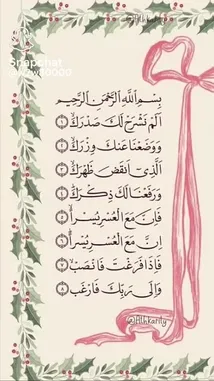 Snapchat
بِسْمِ اللَّهِ الرَّحْمَنِ الرَّحِيمِ
أَلَمْ نَشْرَحْ لَكَ صَدْرَكَ ١
وَوَضَعْنَا عَنكَ وِزْرَكَ ٢
الَّذِي أَنقَضَ ظَهْرَكَ ٣
وَرَفَعْنَا لَكَ ذِكْرَكَ ٤
فَإِنَّ مَعَ الْعُسْرِ يُسْرًا ٥
إِنَّ مَعَ الْعُسْرِ يُسْرًا ٦
فَإِذَا فَرَغْتَ فَانصَبْ ٧
وَإِلَى رَبِّكَ فَارْغَب ٨